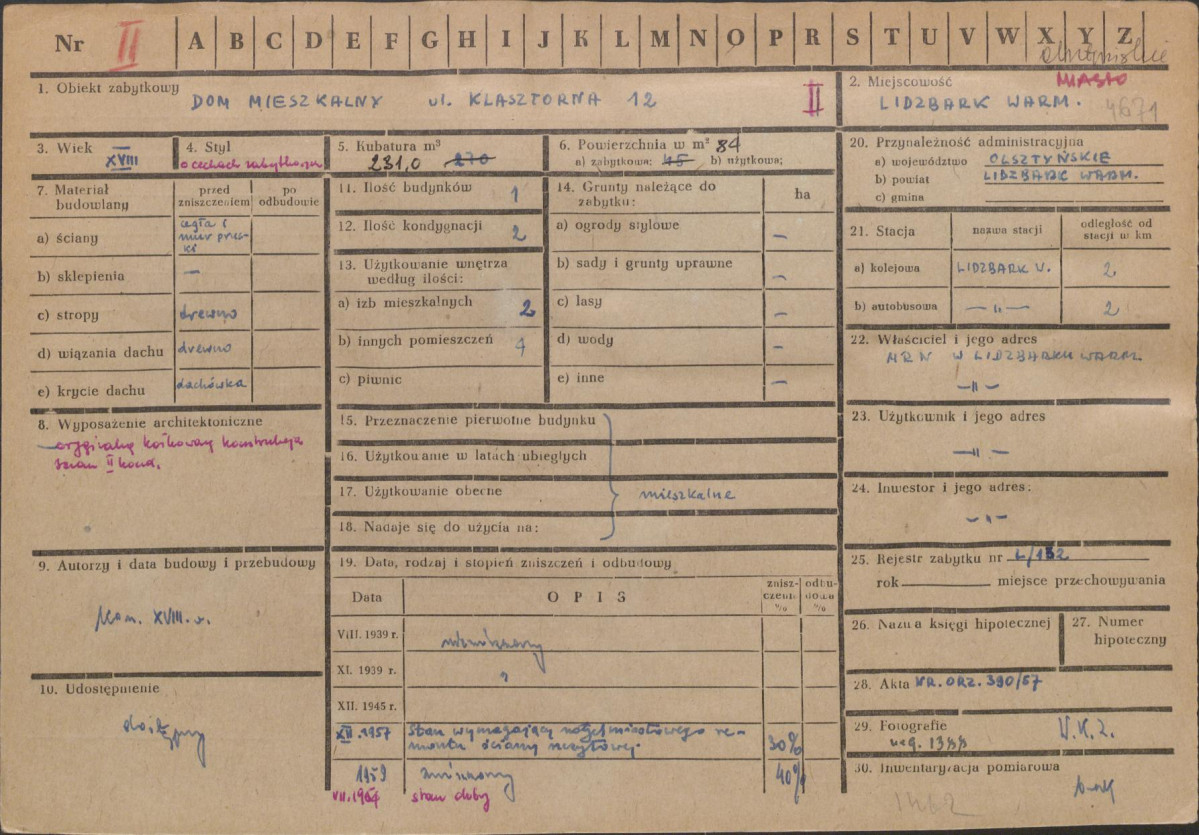 Nr II A B C D E F G H I J K L M N O P R S T U V W X Y Z
1. Obiekt zabytkowy
DOM MIESZKALNY ul. KLASZTORNA 12
II
2. Miejscowość
MIASTO
LIDZBARK WARM. 4671
3. Wiek
XVIII
4. Styl
o cechach
5. Kubatura m³
231,0 270
6. Powierzchnia w m² 84
a) zabytkowa: 45 b) użytkowa:
7. Materiał budowlany
przed zniszczeniem
po odbudowie
a) ściany
cegła i
mur prus-
ki
b) sklepienia —
c) stropy drewno
d) wiązania dachu drewno
e) krycie dachu dachówka
8. Wyposażenie architektoniczne
konstrukcja
ścian II kond.
9. Autorzy i data budowy i przebudowy
XVIII. w.
10. Udostępnienie
dostępny
11. Ilość budynków 1
12. Ilość kondygnacji 2
13. Użytkowanie wnętrza
według ilości:
a) izb mieszkalnych 2
b) innych pomieszczeń 4
c) piwnic
14. Grunty należące do
zabytku:
ha
a) ogrody stylowe —
b) sady i grunty uprawne —
c) lasy —
d) wody —
e) inne —
15. Przeznaczenie pierwotne budynku
16. Użytkowanie w latach ubiegłych
17. Użytkowanie obecne
mieszkalne
18. Nadaje się do użycia na:
19. Data, rodzaj i stopień zniszczeń i odbudowy
Data
OPIS
znisz-
czenia
%
odbu-
dowa
%
VIII. 1939 r.
XI. 1939 r. "
XII. 1945 r.
XII.1957 Stan wymagający natychmiastowego re-
montu ściany szczytowej. 30%
1959 40%
VII.1964 stan dobry
20. Przynależność administracyjna
a) województwo OLSZTYŃSKIE
b) powiat LIDZBARK WARM.
c) gmina
21. Stacja
nazwa stacji
odległość od
stacji w km
a) kolejowa LIDZBARK W. 2
b) autobusowa —"— 2
22. Właściciel i jego adres
MRN W LIDZBARKU WARM.
—"—
23. Użytkownik i jego adres
—"—
24. Inwestor i jego adres:
—"—
25. Rejestr zabytku nr L/132
rok miejsce przechowywania
26. Nazwa księgi hipotecznej
27. Numer
hipoteczny
28. Akta KR. ORZ. 390/57
29. Fotografie
neg. W.K.Z.
30. Inwentaryzacja pomiarowa
brak
1462